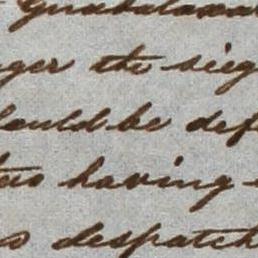 Guadalaxar
ger the sieg
ould be def
tus having
s despatch